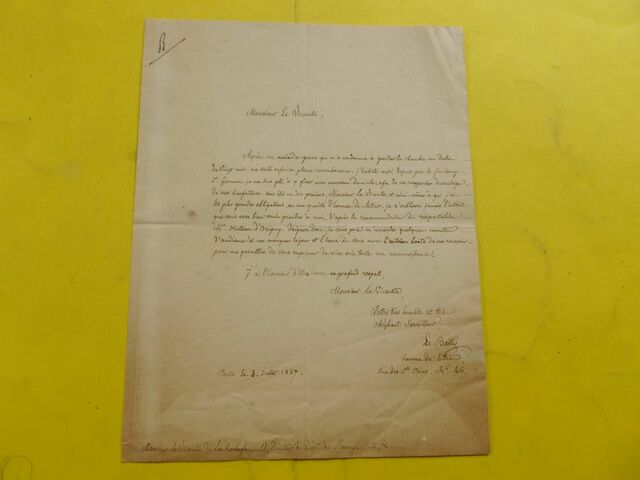 B
Monsieur Le Vicomte,
Après une maladie grave qui m'a condamné à garder la chambre au delà
de vingt mois, ma santé enfin en pleine convalescence, j'habite
St. Germain, je me suis plû à y fixer un nouveau domicile, afin de me rapprocher davantage
de mes bienfaiteurs. Vous êtes un des premiers, Monsieur Le Vicomte, et celui même à qui j'ai
les plus grandes obligations, en ma qualité d'homme-de-lettres. Je n'oublierai jamais l'intérêt
que vous avez bien voulu prendre à moi, d'après la recommandation du respectable
Mr. d'Origny, daignez donc, je vous prie, m'accorder quelques minutes
d'audience et me marquer le jour et l'heure où vous aurez l'extrême bonté de me recevoir
pour me permettre de vous exprimer de vive voix toute ma reconnaissance.
J'ai l'honneur d'être avec un profond respect
Monsieur Le Vicomte,
Votre très humble et très
obéissant Serviteur,
Le Bailly
homme de lettres,
Rue des Sts Pères, No. 46.
Paris le 3. Juillet 1827.
Monsieur le Vicomte de la Rochefoucauld, Directeur du Dépt. des Beaux-Arts, &